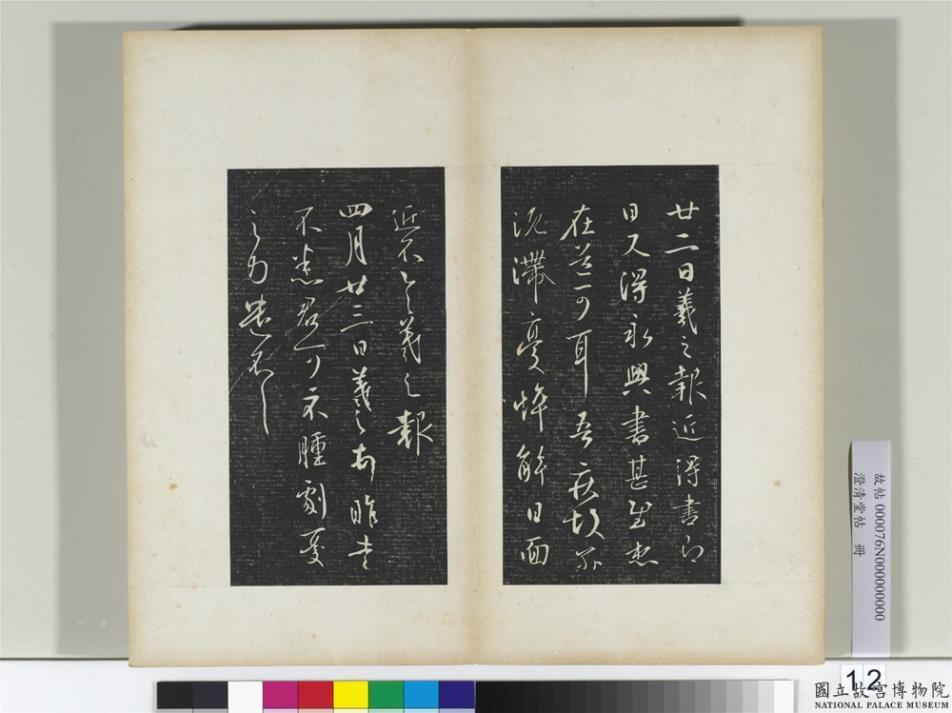 廿二日羲之報近得書即
日又得永興書甚慰想
在道可耳吾疾故爾
沈滯憂悴解日面
近不具羲之報
四月廿三日羲之頓首昨書
不悉君可不腫劇憂
之力遣不
故帖 000076N000000000
澄清堂帖 冊
12
國立故宮博物院
NATIONAL PALACE MUSEUM